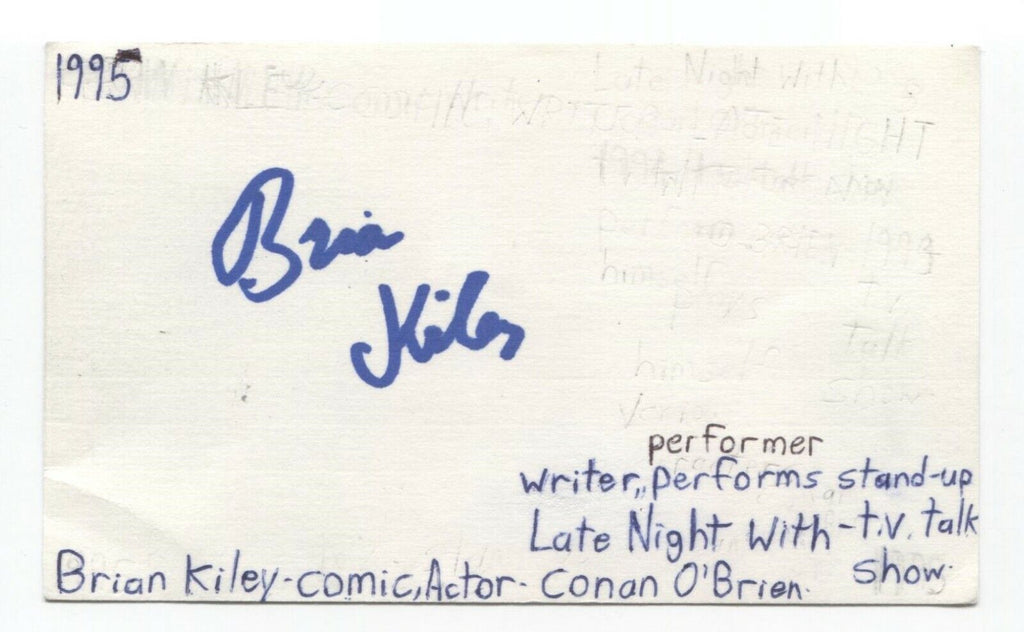 1995
Brian
Kiley
performer
writer, performs stand-up
Late Night With - t.v. talk
show.
Brian Kiley - comic, Actor - Conan O'Brien.